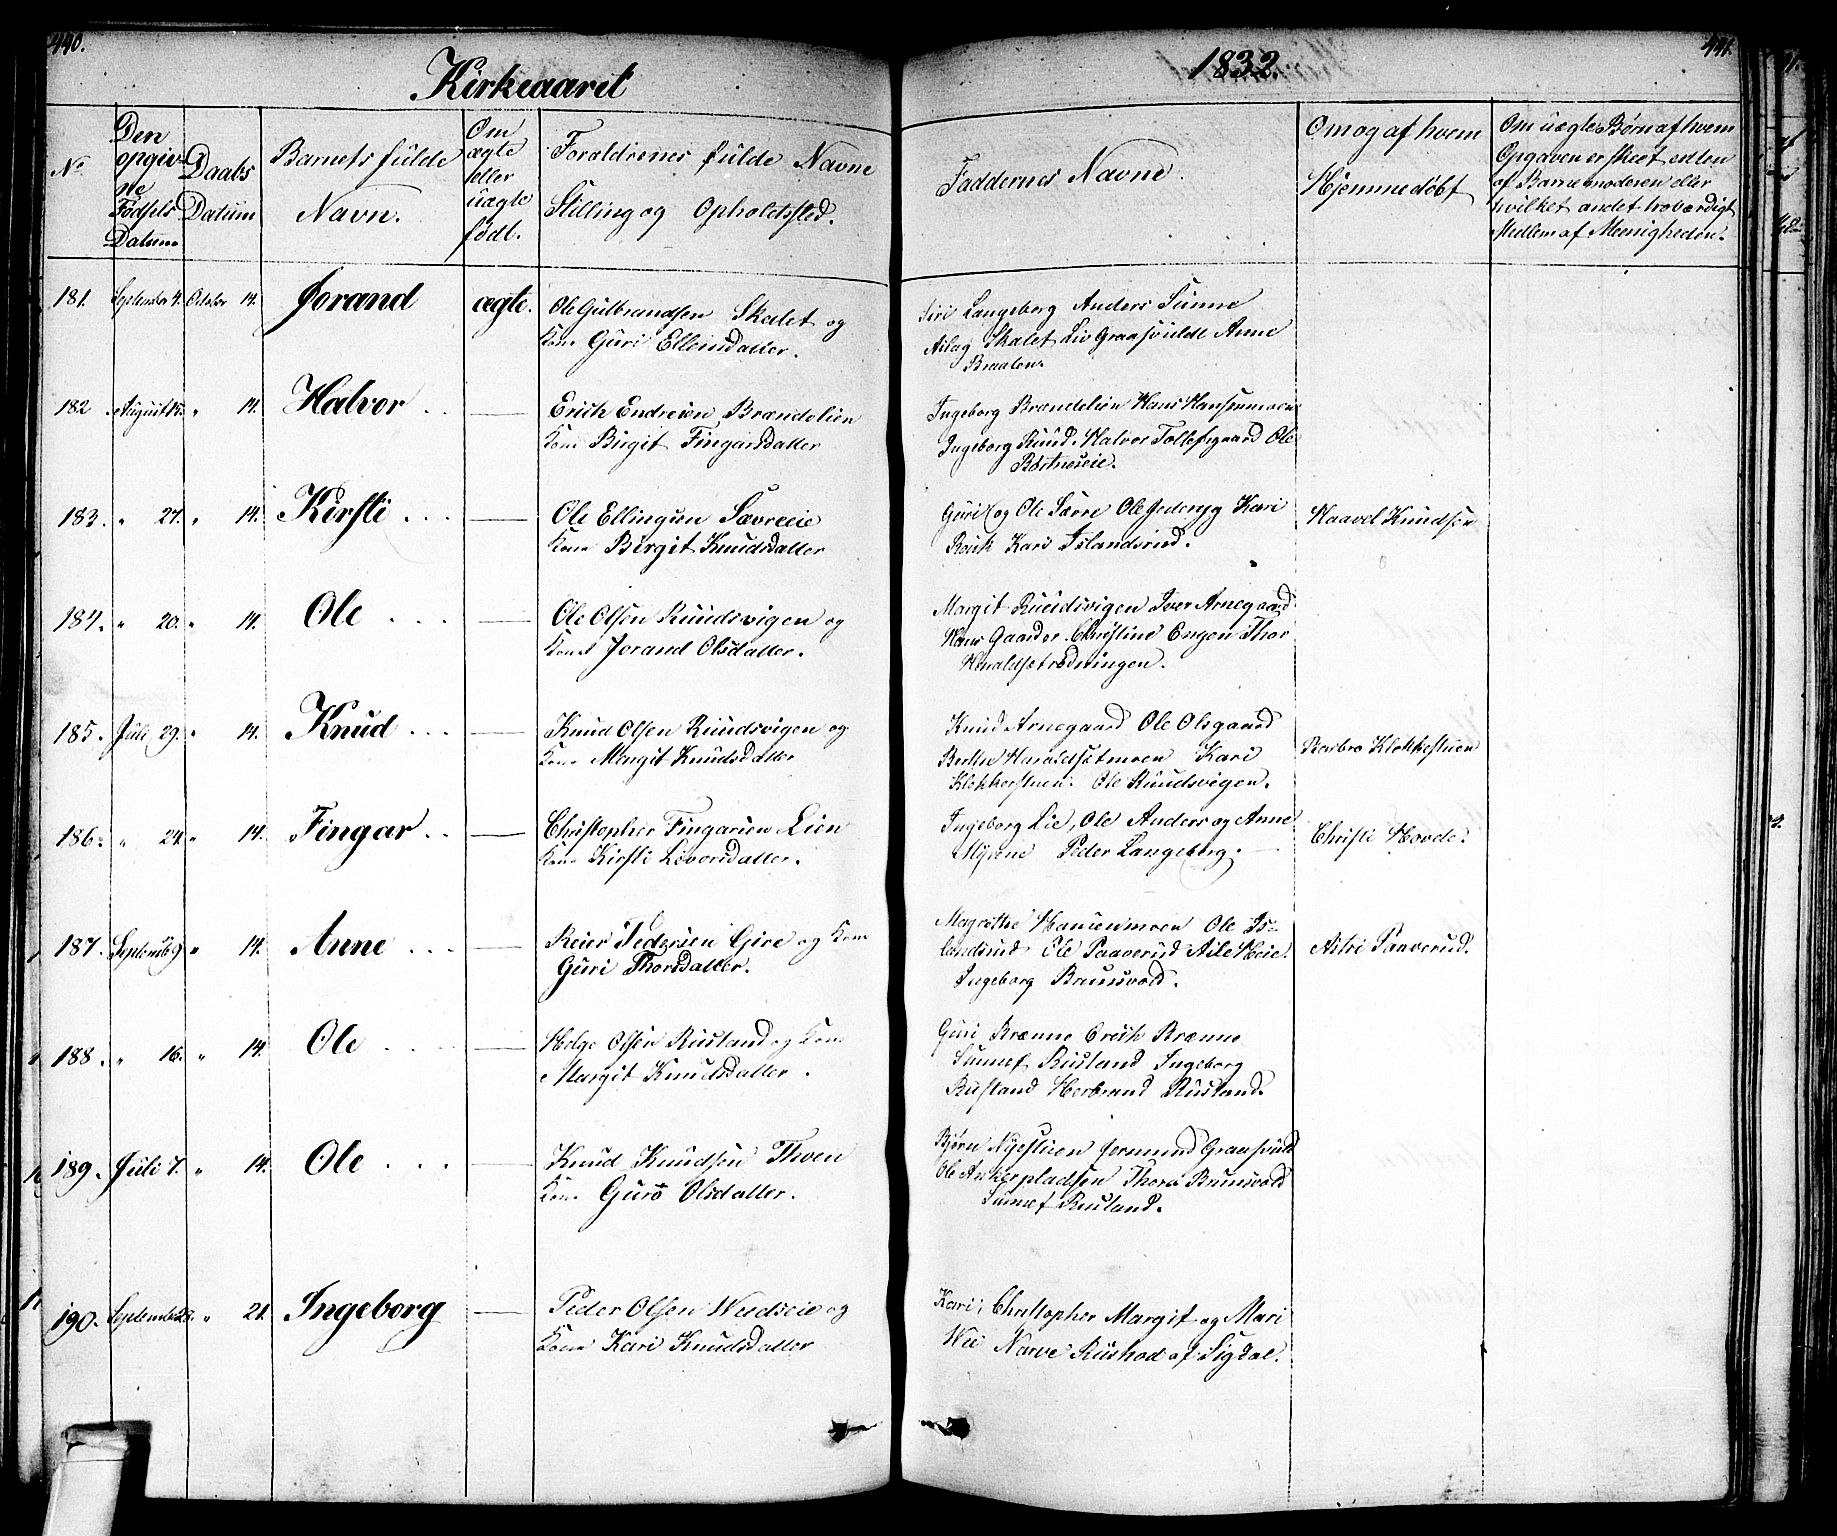 440.
Kirkeaaret
No
Den opgivne Fødsels Datum
Daabs Datum
Barnets fulde Navn.
Om ægte eller uægte født.
Forældrenes fulde Navne
Stilling og Opholdsted.
181. September 4. October 14. Jorand ægte. Ole Gulbrandsen Skalet og
Kone Guri Ellensdatter.
182 August 15. " 14. Halvor . . Erich Endresen Brændelien
Kone Birgit Fingarsdatter
183. " 27. " 14. Kirsti . . . Ole Ellingsen Sævreeie
Kone Birgit Knudsdatter
184. " 20. " 14. Ole . . . Ole Olsen Ruudsvigen og
Kone Jorand Olsdatter.
185. Juli 29. " 14. Knud . . . Knud Olsen Ruudsvigen og
Kone Margit Knudsdatter
186. " 24. " 14. Fingar . . Christopher Fingarsen Lien
Kone Kirsti Livorsdatter.
187. Septemb 9. " 14. Anne . . . Reier Pedersen Gire og Kone
Guri Thorsdatter.
188. " 16. " 14. Ole . . . Helge Olsen Rustand og Kone
Margit Knudsdatter.
189. Juli 7. " 14. Ole . . . Knud Knudsen Thoen
Kone Guro Olsdatter.
190. September 23. " 21. Ingeborg Peder Olsen Weedseie og
Kone Kari Knudsdatter
441.
1832.
Faddernes Navne.
Om og af hvem
Hjemmedøbt
Om uægte Børn af hvem
Opgaven er skeet enten
af Barnemoderen eller
hvilket andet troværdigt
Medlem af Menigheden.
Siri Langeberg Anders Sunne
Aslag Skalet Liv Graasvulde Anne
Braaten.
Ingeborg Brændelien Hans Hansenmoen
Ingeborg Ruud. Halvor Tollefsgaard Ole
Børtneseie.
Guri og Ole Sævre Ole Kari
Roick Kari Islandsrud.
Haavel Knudsen
Margit Ruudsvigen Iver Arnegaard
Hans Gaarder. Christine Engen Thor
Haraldsetrødningen.
Knud Arnegaard Ole Olsgaard
Berthe Haraldsetmoen Kari
Klokkerstuen. Ole Ruudsvigen.
Barbro Klokkestuen
Ingeborg Lie, Ole Anders og Anne
Myrene Peder Langeberg.
Christi Hovde.
Magrethe Hansenmoen Ole Is-
landsrud Ole Paaverud Aile Heie.
Ingeborg Bruusvold.
Astri Paaverud.
Guri Brænne Erich Brænne
Sunnef Rustand Ingeborg
Rustand Herbrand Rustand.
Bjørn Nyestuen Jermund Graasvuld
Ole Ankerpladsen Thora Brunsvold
Sunnef Rustand.
Kari, Christopher Margit og Mari
Wee Narve Rushod af Sigdal.